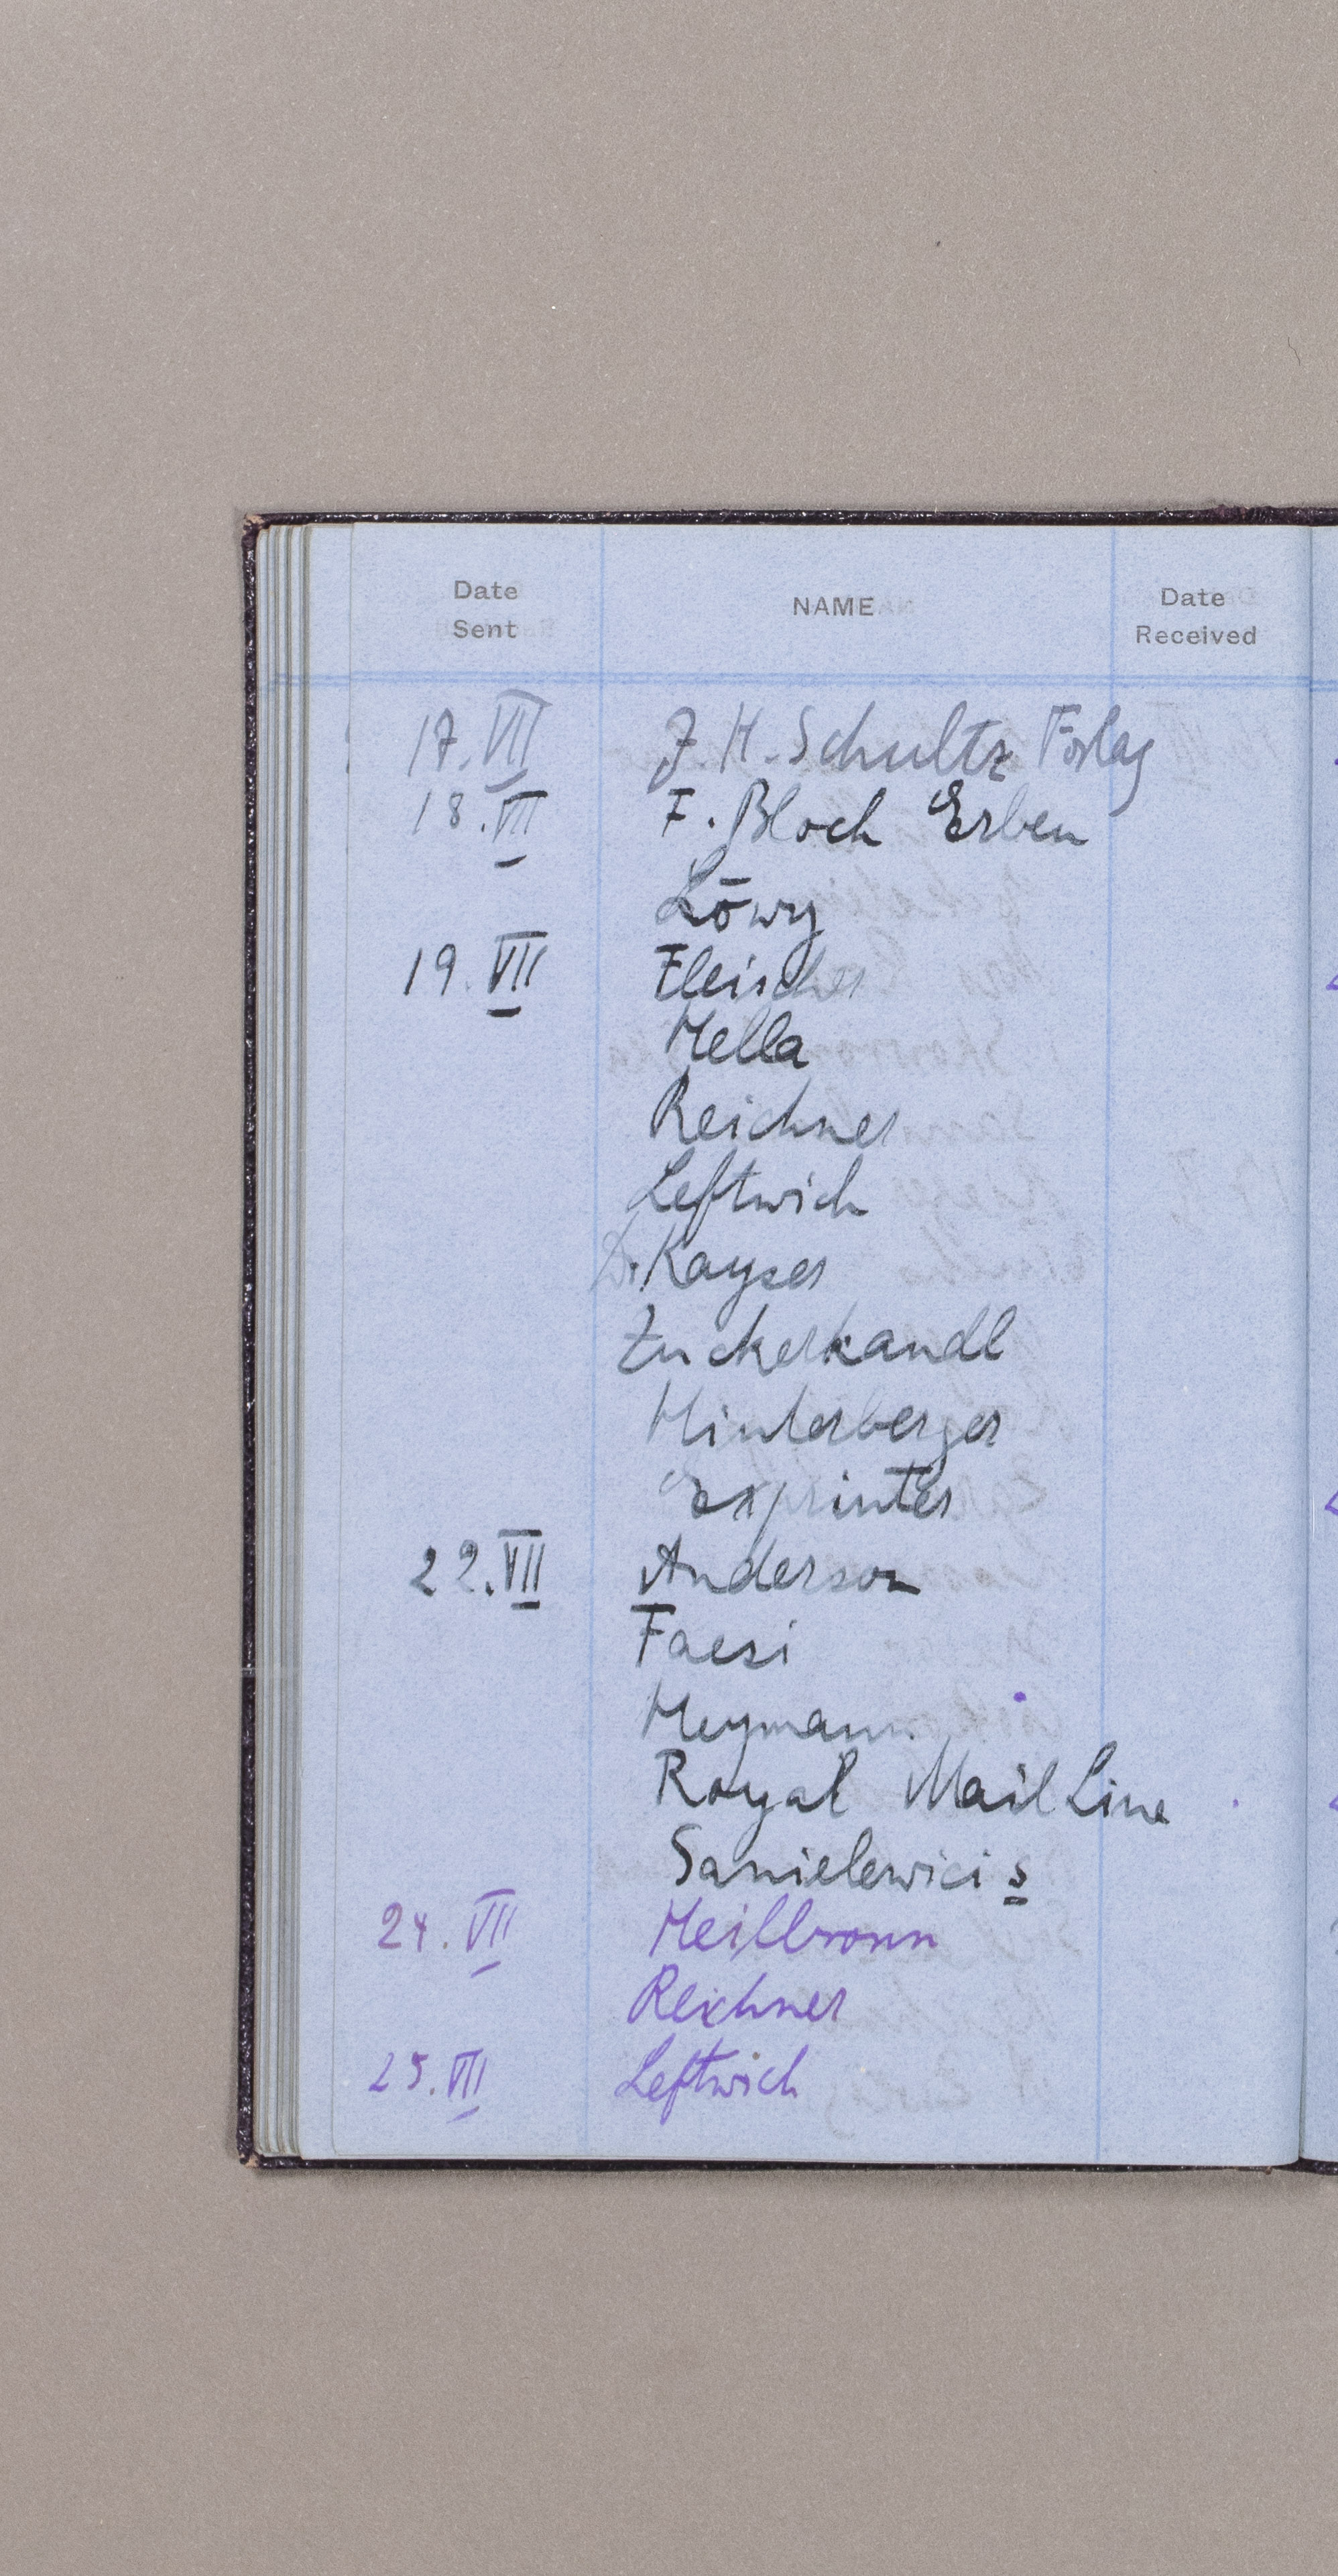 Date Sent NAME Date Received
17.VII J. H. Schultz Forlag
18.VII F. Bloch Erben
Löwy
19.VII Fleischer
Hella
Reichner
Leftwich
Dr. Kayser
Zuckerkandl
Hinterberger
Exprinter
22.VII Anderson
Faesi
Heymann
Royal Mail Line
Sanielewici s
24.VII Heilbronn
Reichner
25.VII Leftwich